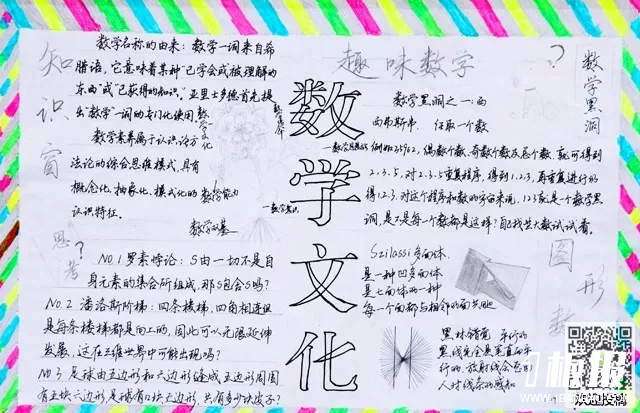 知识窗
数学名称的由来：数学一词来自希
腊语，它意味着某种“已学会或被理解的
东西”或“已获得的知识”。亚里士多德首先提
出“数学”一词的专门化使用
数学素养属于认识论方
法论的综合思维模式，具有
概念化、抽象化、模式化的
认识特征。
数学文化
数学能力
数学知识
数学思想
思考？
NO.1 罗素悖论：S由一切不是自
身元素的集合所组成，那S包含S吗？
NO.2 潘洛斯阶梯：四条楼梯，四角相连但
是每条楼梯都是向上的，因此可以无限延伸
发展，这在三维世界中可能出现吗？
NO.3 足球由五边形和六边形缝成，五边形周围
有五块六边形，足球有12块五边形，共有多少块皮子？
数学文化
趣味数学
？
数学黑洞
数学黑洞之一：西
西弗斯串. 任取一个数
例如35962，偶数个数、奇数个数及总个数，就可得到
2.3.5，对2.3.5重复程序，得到1.2.3，再重复进行仍
得1.2.3，对这个程序和数的宇宙来说，123就是一个数学黑
洞，是不是每一个数都是这样？自己找些大数试试看。
Szilassi多面体，
是一种凹多面体
是七面体的一种
每一个面都与相邻的面共边
图形数
黑林错觉 平行的
黑线完全是笔直而平
行的，放射线会否
人对线条的感知